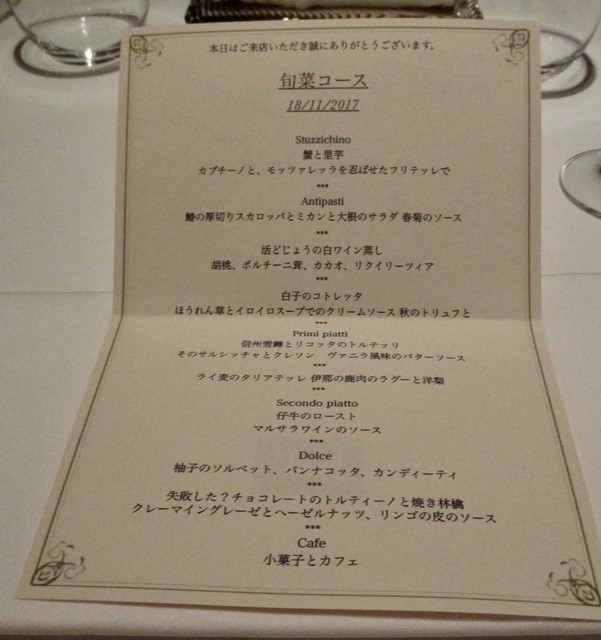 本日はご来店いただき誠にありがとうございます。
旬菜コース
18/11/2017
Stuzzichino
蟹と里芋
カプチーノと、モッツァレッラを忍ばせたフリテッレで
***
Antipasti
鰆の厚切りスカロッパとミカンと大根のサラダ 春菊のソース
***
活どじょうの白ワイン蒸し
胡桃、ポルチーニ茸、カカオ、リクイリーツィア
***
白子のコトレッタ
ほうれん草とイロイロスープでのクリームソース 秋のトリュフと
***
Primi piatti
信州雪鱒とリコッタのトルテッリ
そのサルシッチャとクレソン ヴァニラ風味のバターソース
***
ライ麦のタリアテッレ 伊那の鹿肉のラグーと洋梨
***
Secondo piatto
仔牛のロースト
マルサラワインのソース
***
Dolce
柚子のソルベット、パンナコッタ、カンディーティ
***
失敗した？チョコレートのトルティーノと焼き林檎
クレーマイングレーゼとヘーゼルナッツ、リンゴの皮のソース
***
Cafe
小菓子とカフェ